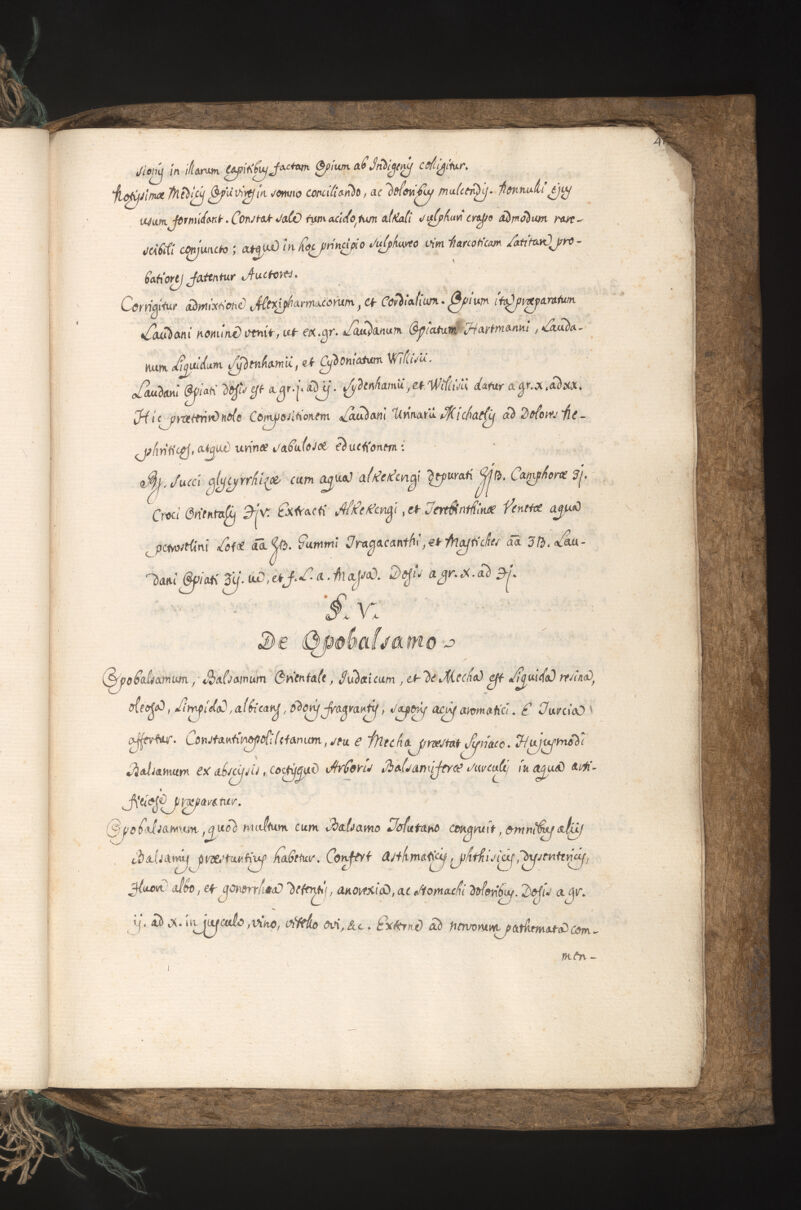 4
sionis in illarum capitibus factam Opium ab Indigenis colligitur.
Notissimæ Medicis Opii vires in somno conciliando, ac doloribus mulcendis. Nonnulli ejus
usum formidant. Constat sale tum acido, tum alkali sulphuri crasso admodum rare-
scibili conjuncto; atque in hoc principio sulphureo vim Narcoticam latitare pro-
batiores fatentur Auctores.
Corrigitur admixtione Alexipharmacorum, et Cordialium. Opium ita præparatum
Laudani nomine venit, ut ex. gr. Laudanum Opiatum Hartmanni, Lauda-
num Liquidum Sydenhamii, et Cydoniatum Willisii.
Laudani Opiati dosis est a gr. j. ad ij. Sydenhamii, et Willisii datur a gr. x. ad xx.
Hic præterire nolo Compositionem Laudani Urinarii Michaelis ad Dolores Ne-
phriticos, atque urinæ sabulosæ eductionem:
℞. Succi glycyrrhizæ cum aqua alkekengi depurati ℥jß. Camphoræ ʒj.
Croci Orientalis ℈jv. Extracti Alkekengi, et Terebinthinæ Venetæ aqua
petroselini Lotæ āā ℥ß. Gummi Tragacanthi, et Mastiches āā ʒß. Lau-
dani Opiati ʒij. M., et f. L. a. Massa. Dosis a gr. x. ad ℈j.
§. V.
De Opobalsamo
Opobalsamum, Balsamum Orientale, Judaicum, et de Mecha est Liquida resina,
oleosa, Limpida, albicans, odoris fragrantis, saporis acris aromatici. E Turcia
affertur. Constantinopolitanum, seu e Mecha præstat Syriaco. Hujusmodi
Balsamum ex abscissis, coctisque Arboris Balsamiferæ surculis in aqua arti-
ficiose præparatur.
Opobalsamum, quod multum cum Balsamo Tolutano congruit, omnibus aliis
Balsamis præstantius habetur. Confert Asthmaticis, phthisicis, dysentericis,
Fluore albo, et gonorrhea detentis, anorexia, ac stomachi doloribus. Dosis a gr.
ij. ad x. in jusculo, vino, vitello ovi, &c. Externe ad nervorum pathemata com-
men-